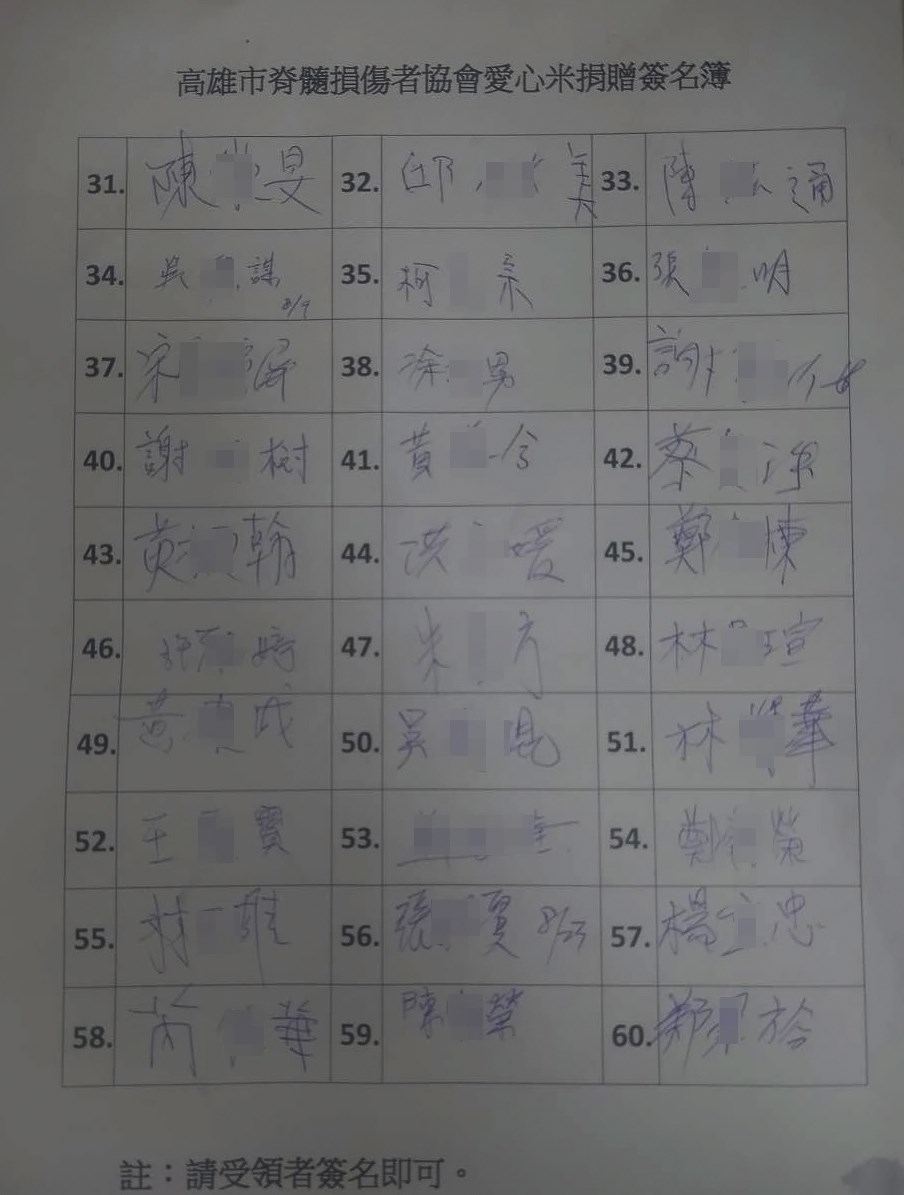 高雄市脊髓損傷者協會愛心米捐贈簽名簿
31. 陳 旻 32. 邱 美 33. 陳 通
34. 吳 謀 8/9 35. 柯 宗 36. 張 明
37. 宋 38. 涂 男 39. 謝
40. 謝 樹 41. 黃 令 42. 蔡
43. 黃 翰 44. 洪 媛 45. 鄭 棟
46. 許 婷 47. 朱 方 48. 林 瑄
49. 黃 成 50. 吳 51. 林 華
52. 王 寶 53. 54. 鄭 榮
55. 林 雄 56. 張 夏 8/23 57. 楊 忠
58. 華 59. 陳 榮 60. 鄭
註：請受領者簽名即可。